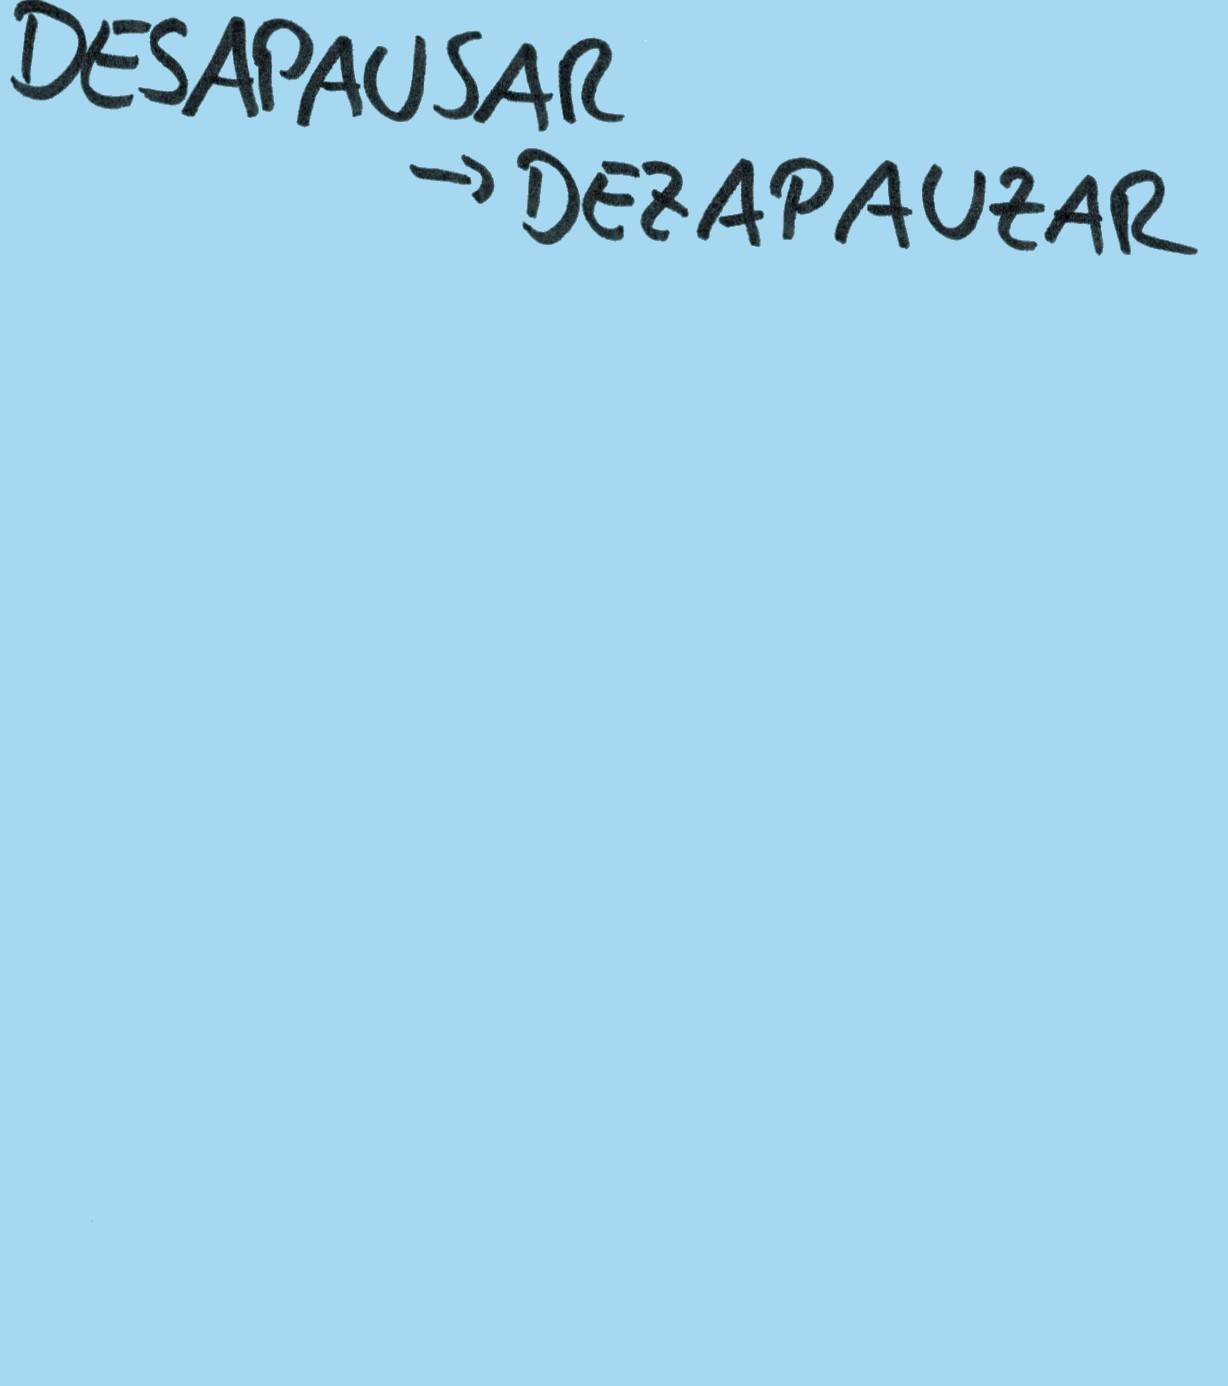 DESAPAUSAR
→ DEZAPAUZAR